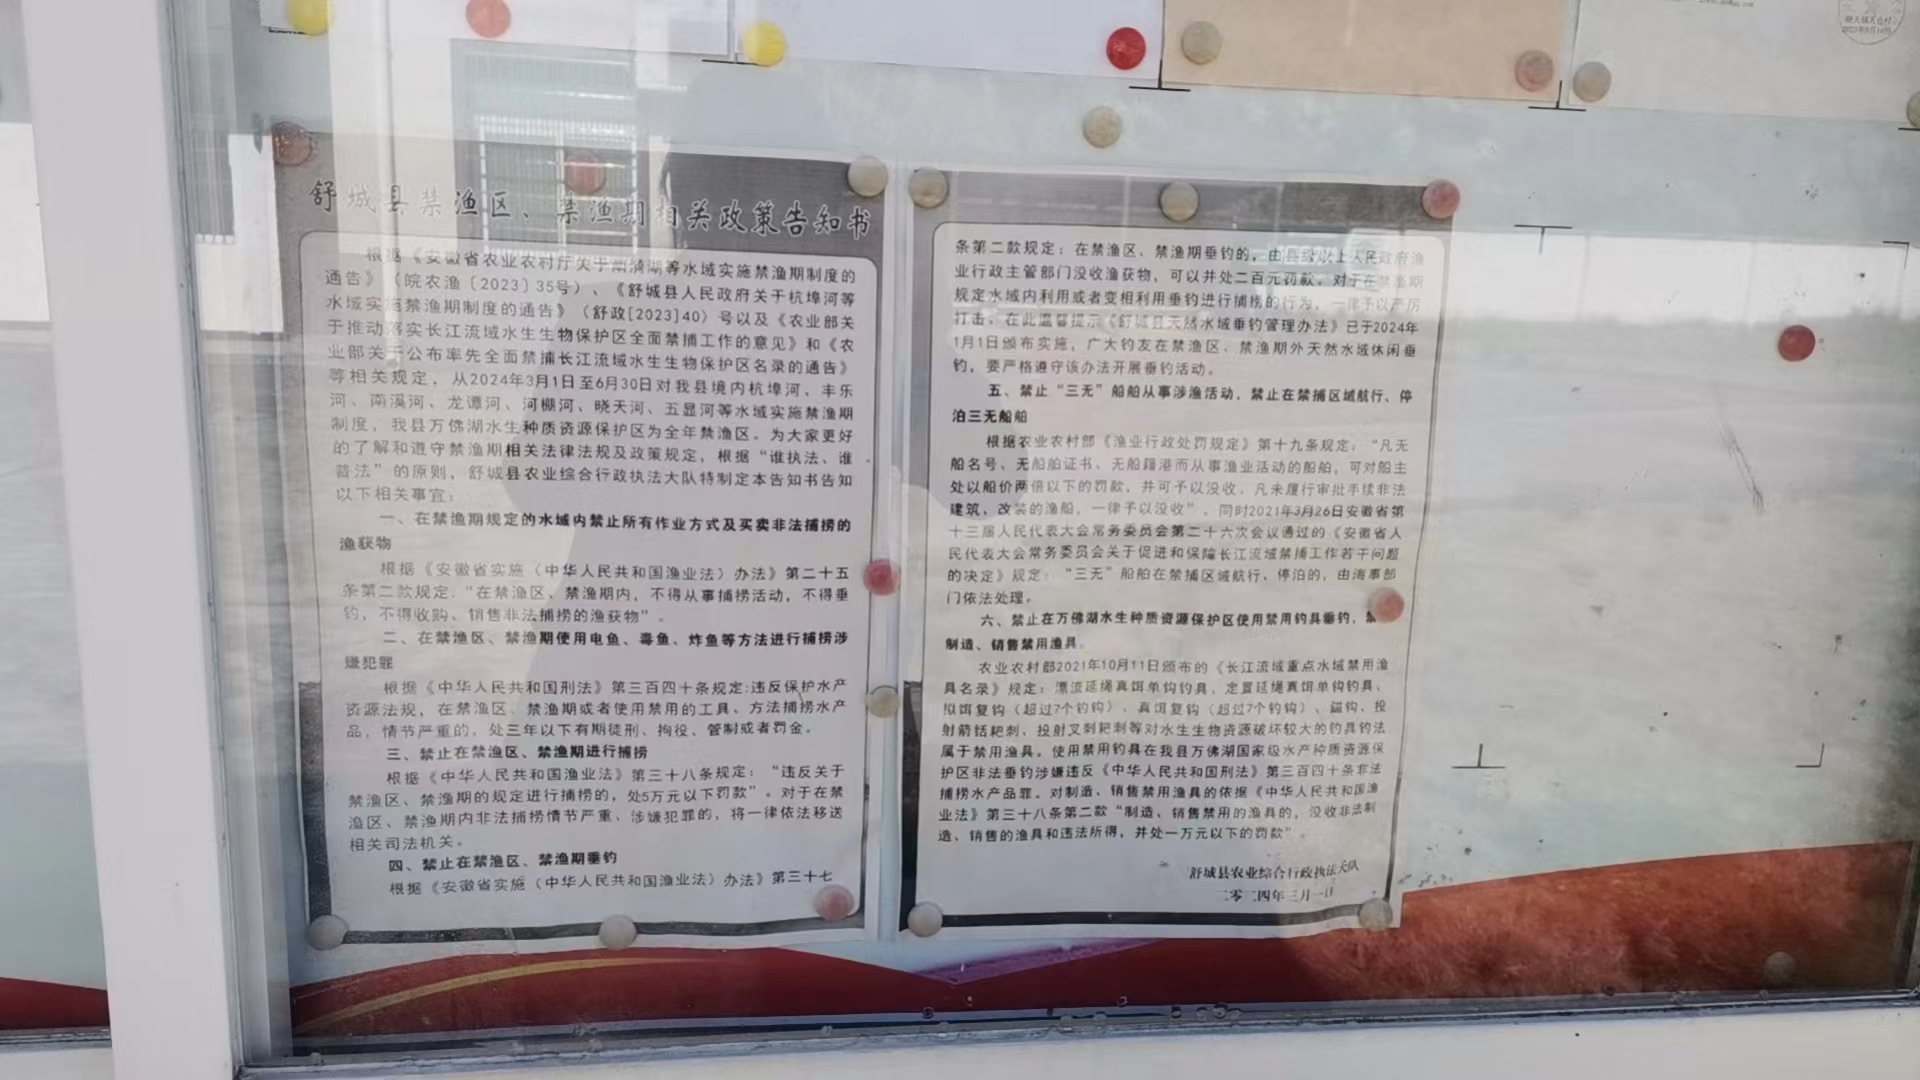 晓天镇天仓村
2023年9月14日
舒城县禁渔区、禁渔期相关政策告知书
根据《安徽省农业农村厅关于南漪湖等水域实施禁渔期制度的
通告》（皖农渔〔2023〕35号）、《舒城县人民政府关于杭埠河等
水域实施禁渔期制度的通告》（舒政[2023]40）号以及《农业部关
于推动落实长江流域水生生物保护区全面禁捕工作的意见》和《农
业部关于公布率先全面禁捕长江流域水生生物保护区名录的通告》
等相关规定，从2024年3月1日至6月30日对我县境内杭埠河、丰乐
河、南溪河、龙潭河、河棚河、晓天河、五显河等水域实施禁渔期
制度，我县万佛湖水生种质资源保护区为全年禁渔区。为大家更好
的了解和遵守禁渔期相关法律法规及政策规定，根据“谁执法、谁
普法”的原则，舒城县农业综合行政执法大队特制定本告知书告知
以下相关事宜：
一、在禁渔期规定的水域内禁止所有作业方式及买卖非法捕捞的
渔获物
根据《安徽省实施（中华人民共和国渔业法）办法》第二十五
条第二款规定：“在禁渔区、禁渔期内，不得从事捕捞活动，不得垂
钓，不得收购、销售非法捕捞的渔获物”。
二、在禁渔区、禁渔期使用电鱼、毒鱼、炸鱼等方法进行捕捞涉
嫌犯罪
根据《中华人民共和国刑法》第三百四十条规定:违反保护水产
资源法规，在禁渔区、禁渔期或者使用禁用的工具、方法捕捞水产
品，情节严重的，处三年以下有期徒刑、拘役、管制或者罚金。
三、禁止在禁渔区、禁渔期进行捕捞
根据《中华人民共和国渔业法》第三十八条规定：“违反关于
禁渔区、禁渔期的规定进行捕捞的，处5万元以下罚款”。对于在禁
渔区、禁渔期内非法捕捞情节严重、涉嫌犯罪的，将一律依法移送
相关司法机关。
四、禁止在禁渔区、禁渔期垂钓
根据《安徽省实施（中华人民共和国渔业法）办法》第三十七
条第二款规定：在禁渔区、禁渔期垂钓的，由县级以上人民政府渔
业行政主管部门没收渔获物，可以并处二百元罚款。对于在禁渔期
规定水域内利用或者变相利用垂钓进行捕捞的行为，一律予以严厉
打击。在此温馨提示《舒城县天然水域垂钓管理办法》已于2024年
1月1日颁布实施，广大钓友在禁渔区、禁渔期外天然水域休闲垂
钓，要严格遵守该办法开展垂钓活动。
五、禁止“三无”船舶从事涉渔活动，禁止在禁捕区域航行、停
泊三无船舶
根据农业农村部《渔业行政处罚规定》第十九条规定：“凡无
船名号、无船舶证书、无船籍港而从事渔业活动的船舶，可对船主
处以船价两倍以下的罚款，并可予以没收。凡未履行审批手续非法
建筑、改装的渔船，一律予以没收”。同时2021年3月26日安徽省第
十三届人民代表大会常务委员会第二十六次会议通过的《安徽省人
民代表大会常务委员会关于促进和保障长江流域禁捕工作若干问题
的决定》规定：“三无”船舶在禁捕区域航行、停泊的，由海事部
门依法处理。
六、禁止在万佛湖水生种质资源保护区使用禁用钓具垂钓，禁
制造、销售禁用渔具。
农业农村部2021年10月11日颁布的《长江流域重点水域禁用渔
具名录》规定：漂流延绳真饵单钩钓具、定置延绳真饵单钩钓具、
拟饵复钩（超过7个钓钩）、真饵复钩（超过7个钓钩）、锚钩、投
射箭铦耙刺、投射叉刺耙刺等对水生生物资源破坏较大的钓具钓法
属于禁用渔具。使用禁用钓具在我县万佛湖国家级水产种质资源保
护区非法垂钓涉嫌违反《中华人民共和国刑法》第三百四十条非法
捕捞水产品罪。对制造、销售禁用渔具的依据《中华人民共和国渔
业法》第三十八条第二款“制造、销售禁用的渔具的，没收非法制
造、销售的渔具和违法所得，并处一万元以下的罚款”。
舒城县农业综合行政执法大队
二零二四年三月一日